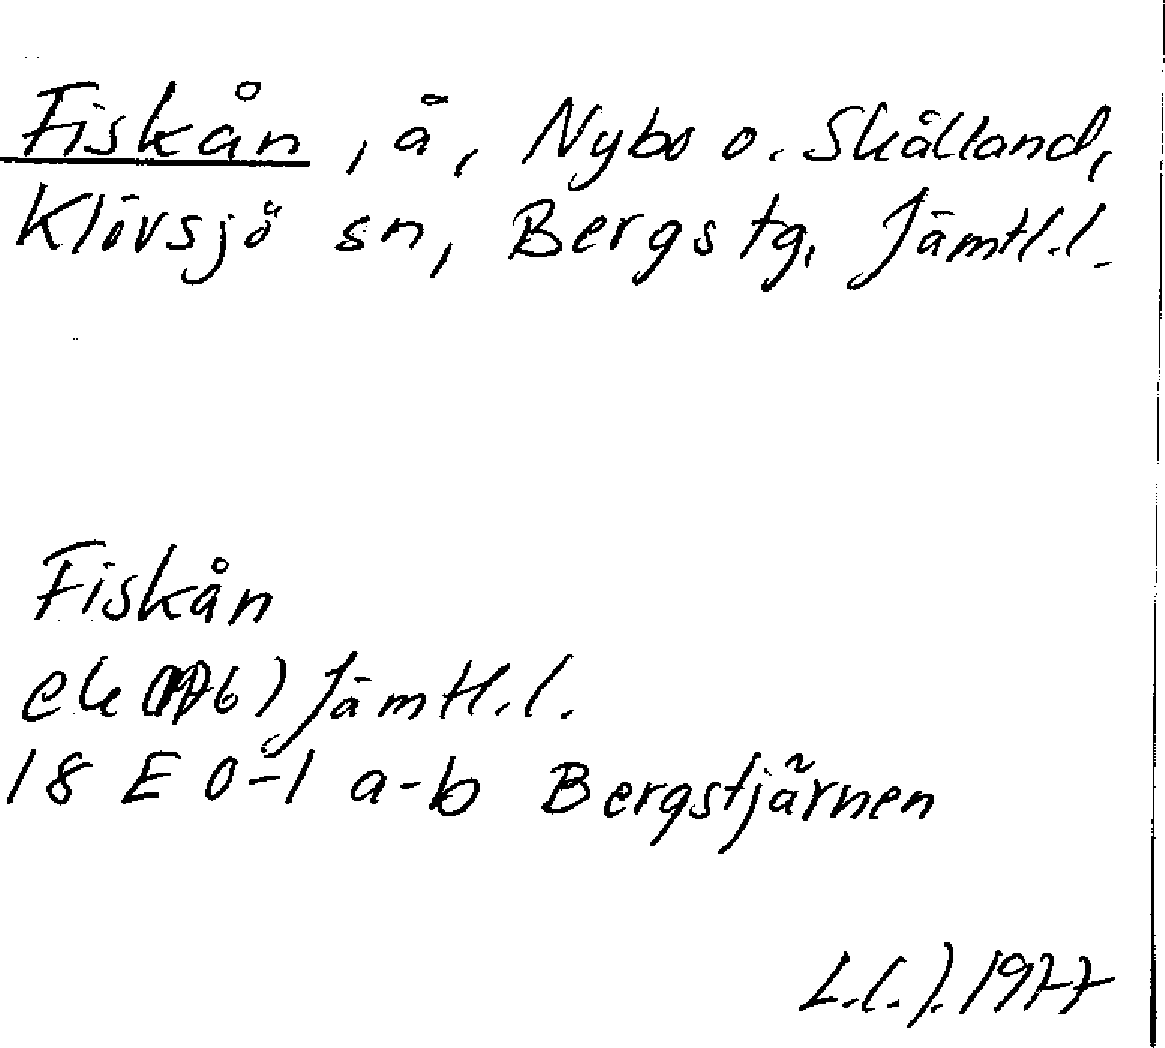 Fiskån, å, Nybo o. Skålland,
Klövsjö sn, Bergs tg, Jämtl.l.
Fiskån
ek Jämtl.l.
18 E 0-1 a-b Bergstjärnen
1977